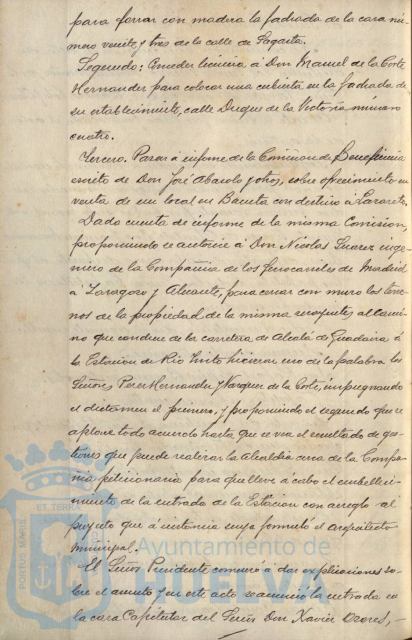 para forrar con madera la fachada de la casa nú-
mero veinte y tres de la calle de Sagasta.
Segundo: Conceder licencia á Don Manuel de la Corte
Hernandez para colocar una cubierta en la fachada de
su establecimiento, calle Duque de la Victoria número
cuatro.
Tercero. Pasar á informe de la Comisión de Beneficencia
escrito de Don José Abasolo y otros, sobre ofrecimiento en
venta de un local en Baceta con destino á Lazareto.
Dado cuenta de informe de la misma Comision,
proponiendo se autorice á Don Nicolas Suarez inge-
niero de la Compañia de los ferrocarriles de Madrid
á Zaragoza y Alicante, para cercar con muro los terre-
nos de la propiedad de la misma respecto al cami-
no que conduce de la carretera de Alcalá de Guadaira á
la Estacion de Rio Tinto hicieron uso de la palabra los
Señores Perez Hernandez y Vazquez de la Corte, impugnando
el dictamen el primero, y proponiendo el segundo que se
aplace todo acuerdo hasta que se vea el resultado de ges-
tiones que puede realizar la Alcaldia cerca de la Compa-
ñia peticionaria para que lleve á cabo el embelleci-
miento de la entrada de la Estacion con arreglo al
proyecto que á instancia suya formuló el arquitecto
municipal.
El Señor Presidente comenzó á dar explicaciones so-
bre el asunto y en este acto se anunció la entrada en
la casa Capitular del Señor Don Xavier Ozores, -
PORTUS MARIS
ET TERRA
Ayuntamiento de
HUELVA